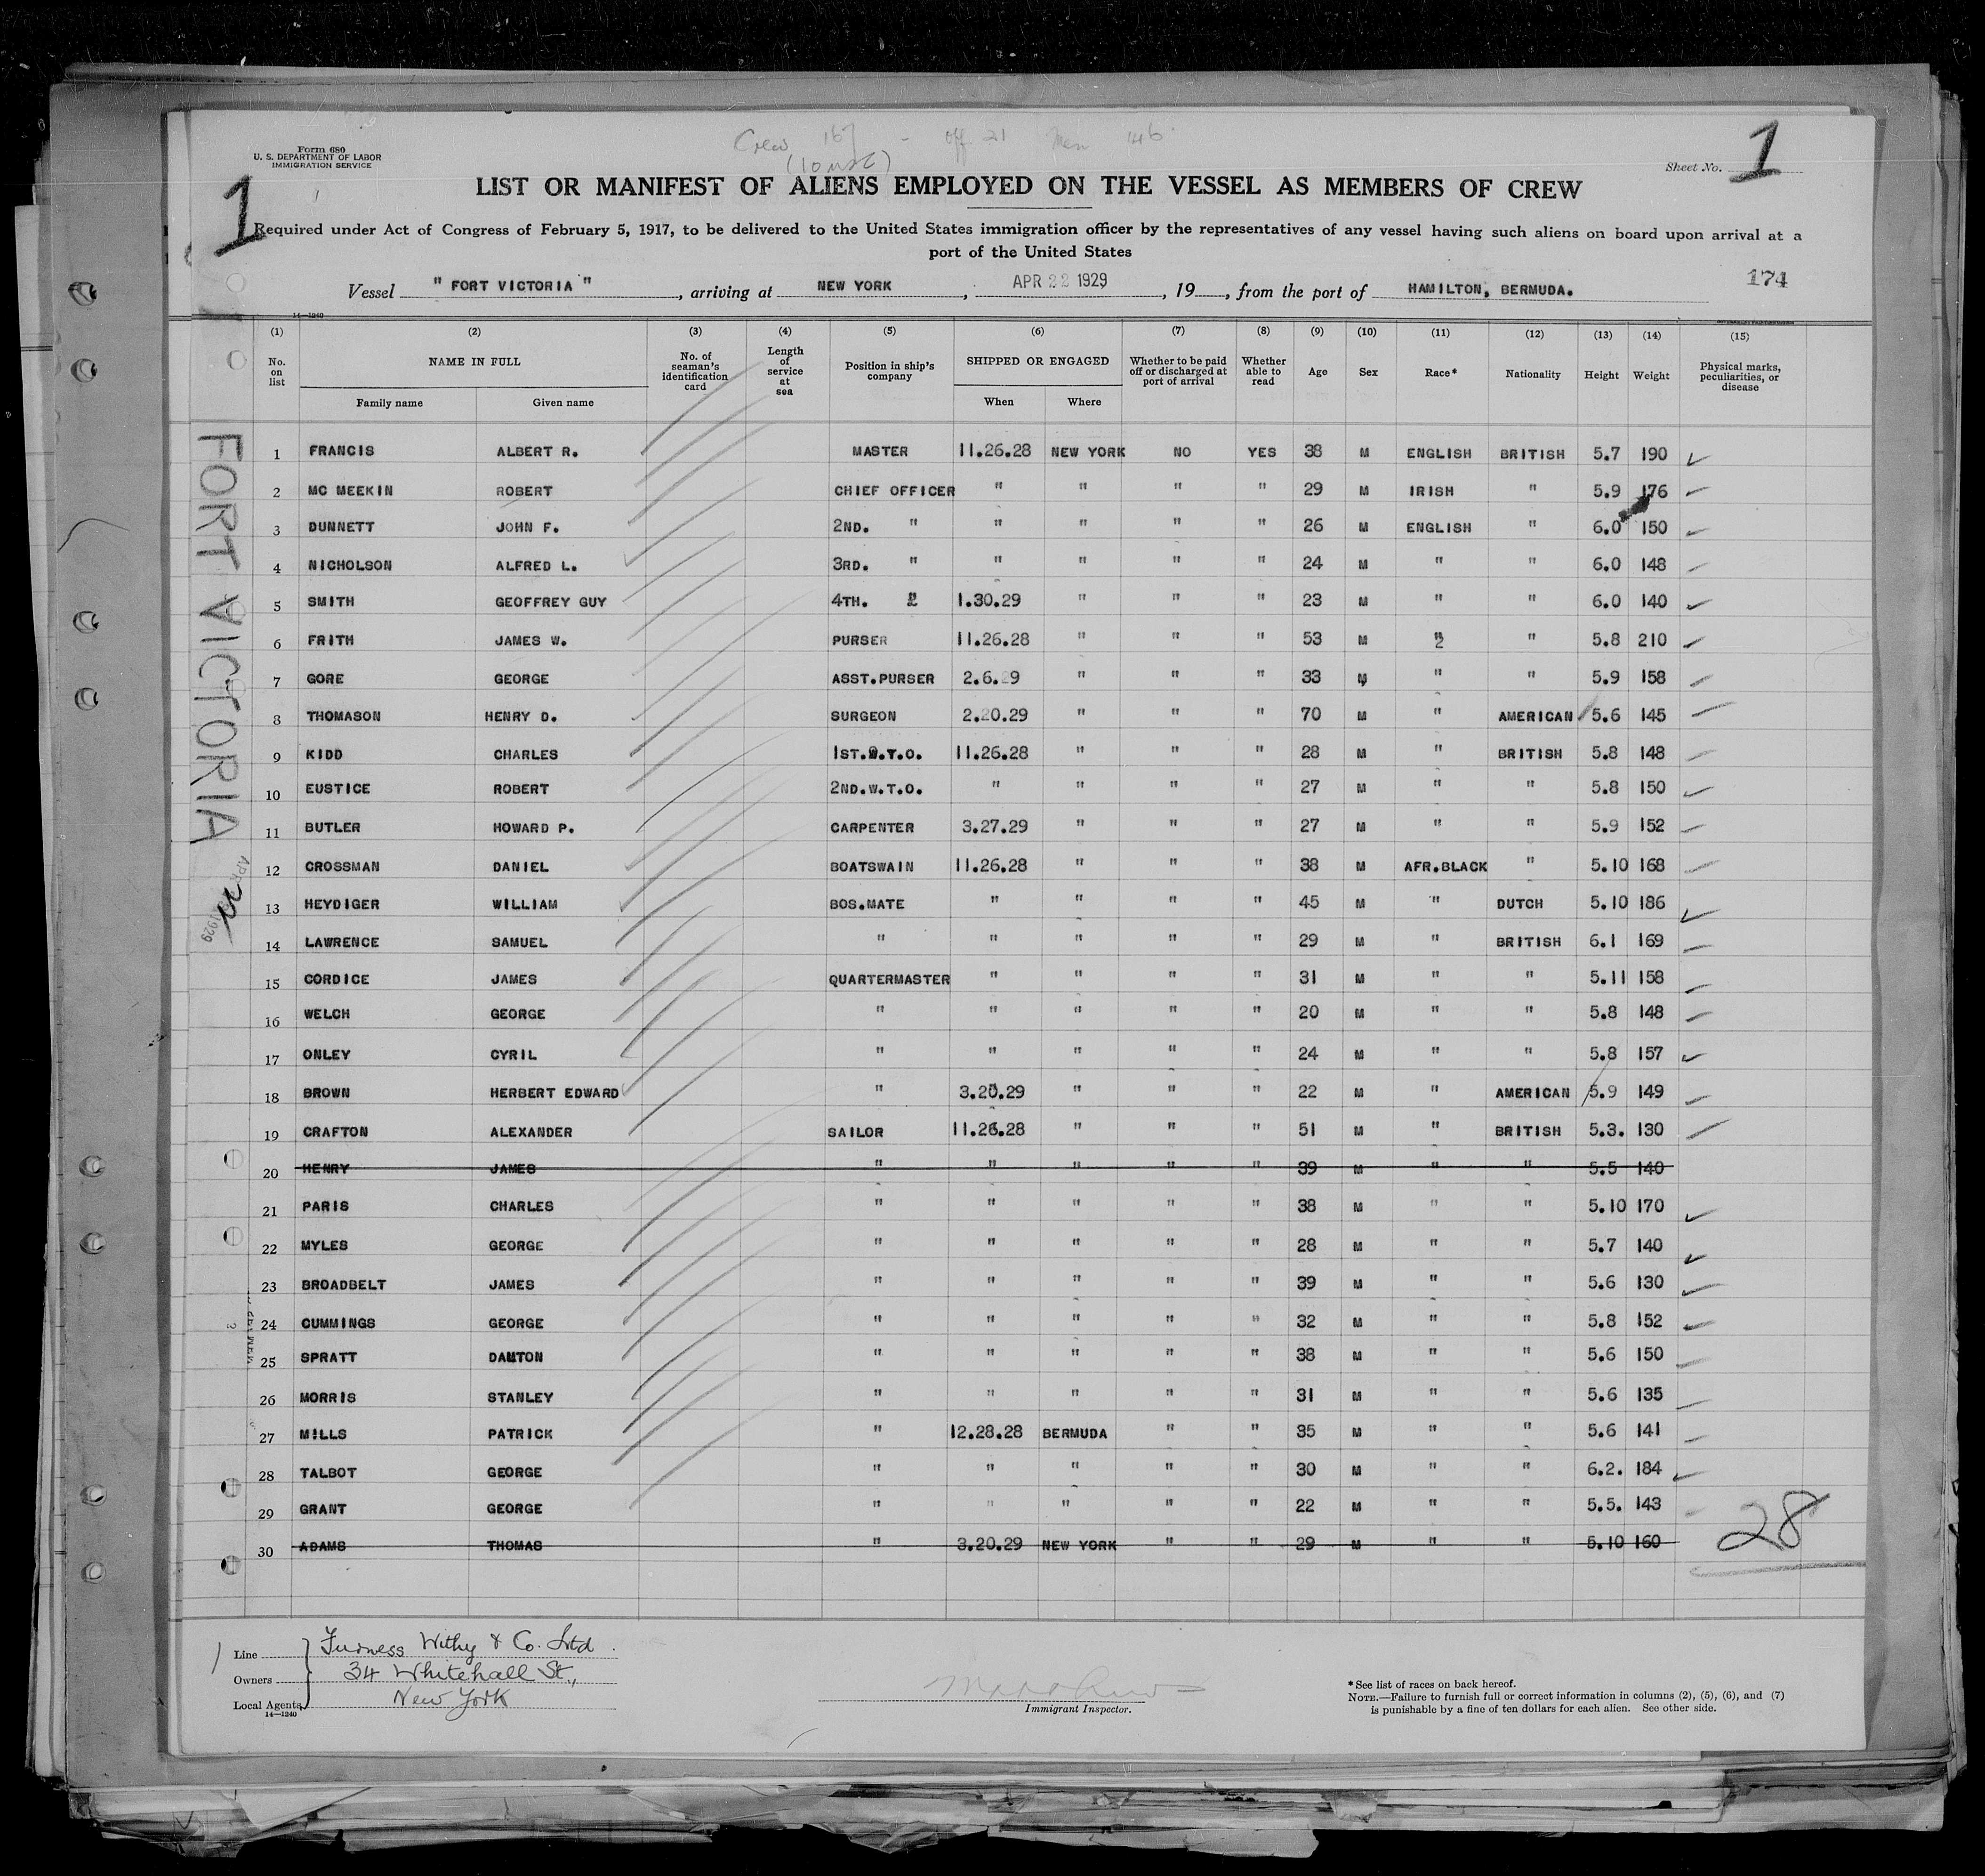 Crew 167 - off. 21 Men 146
Form 680
U. S. DEPARTMENT OF LABOR
IMMIGRATION SERVICE
Sheet No. 1
1
LIST OR MANIFEST OF ALIENS EMPLOYED ON THE VESSEL AS MEMBERS OF CREW
Required under Act of Congress of February 5, 1917, to be delivered to the United States immigration officer by the representatives of any vessel having such aliens on board upon arrival at a
port of the United States
174
Vessel " FORT VICTORIA ", arriving at NEW YORK, APR 22 1929, 19__, from the port of HAMILTON, BERMUDA.
14—1240
(1) (2) (3) (4) (5) (6) (7) (8) (9) (10) (11) (12) (13) (14) (15)
No. on list NAME IN FULL Family name Given name No. of seaman's identification card Length of service at sea Position in ship's company SHIPPED OR ENGAGED When Where Whether to be paid off or discharged at port of arrival Whether able to read Age Sex Race* Nationality Height Weight Physical marks, peculiarities, or disease
1 FRANCIS ALBERT R. MASTER 11.26.28 NEW YORK NO YES 38 M ENGLISH BRITISH 5.7 190
2 MC MEEKIN ROBERT CHIEF OFFICER " " " " 29 M IRISH " 5.9 176
3 DUNNETT JOHN F. 2ND. " " " " " 26 M ENGLISH " 6.0 150
4 NICHOLSON ALFRED L. 3RD. " " " " " 24 M " " 6.0 148
5 SMITH GEOFFREY GUY 4TH. " 1.30.29 " " " 23 M " " 6.0 140
6 FRITH JAMES W. PURSER 11.26.28 " " " 53 M " " 5.8 210
7 GORE GEORGE ASST.PURSER 2.6.29 " " " 33 M " " 5.9 158
8 THOMASON HENRY D. SURGEON 2.20.29 " " " 70 M " AMERICAN 5.6 145
9 KIDD CHARLES 1ST.W.T.O. 11.26.28 " " " 28 M " BRITISH 5.8 148
10 EUSTICE ROBERT 2ND.W.T.O. " " " " 27 M " " 5.8 150
11 BUTLER HOWARD P. CARPENTER 3.27.29 " " " 27 M " " 5.9 152
12 CROSSMAN DANIEL BOATSWAIN 11.26.28 " " " 38 M AFR.BLACK " 5.10 168
13 HEYDIGER WILLIAM BOS.MATE " " " " 45 M " DUTCH 5.10 186
14 LAWRENCE SAMUEL " " " " " 29 M " BRITISH 6.1 169
15 CORDICE JAMES QUARTERMASTER " " " " 31 M " " 5.11 158
16 WELCH GEORGE " " " " " 20 M " " 5.8 148
17 ONLEY CYRIL " " " " " 24 M " " 5.8 157
18 BROWN HERBERT EDWARD " 3.20.29 " " " 22 M " AMERICAN 5.9 149
19 CRAFTON ALEXANDER SAILOR 11.26.28 " " " 51 M " BRITISH 5.3. 130
20 HENRY JAMES " " " " " 39 M " " 5.5 140
21 PARIS CHARLES " " " " " 38 M " " 5.10 170
22 MYLES GEORGE " " " " " 28 M " " 5.7 140
23 BROADBELT JAMES " " " " " 39 M " " 5.6 130
24 CUMMINGS GEORGE " " " " " 32 M " " 5.8 152
25 SPRATT DALTON " " " " " 38 M " " 5.6 150
26 MORRIS STANLEY " " " " " 31 M " " 5.6 135
27 MILLS PATRICK " 12.28.28 BERMUDA " " 35 M " " 5.6 141
28 TALBOT GEORGE " " " " " 30 M " " 6.2. 184
29 GRANT GEORGE " " " " " 22 M " " 5.5. 143
30 ADAMS THOMAS " 3.20.29 NEW YORK " " 29 M " " 5.10 160
28
FORT VICTORIA
Line Furness Withy & Co. Ltd.
Owners 34 Whitehall St.,
Local Agents New York
14—1240
Immigrant Inspector.
*See list of races on back hereof.
NOTE.—Failure to furnish full or correct information in columns (2), (5), (6), and (7)
is punishable by a fine of ten dollars for each alien. See other side.